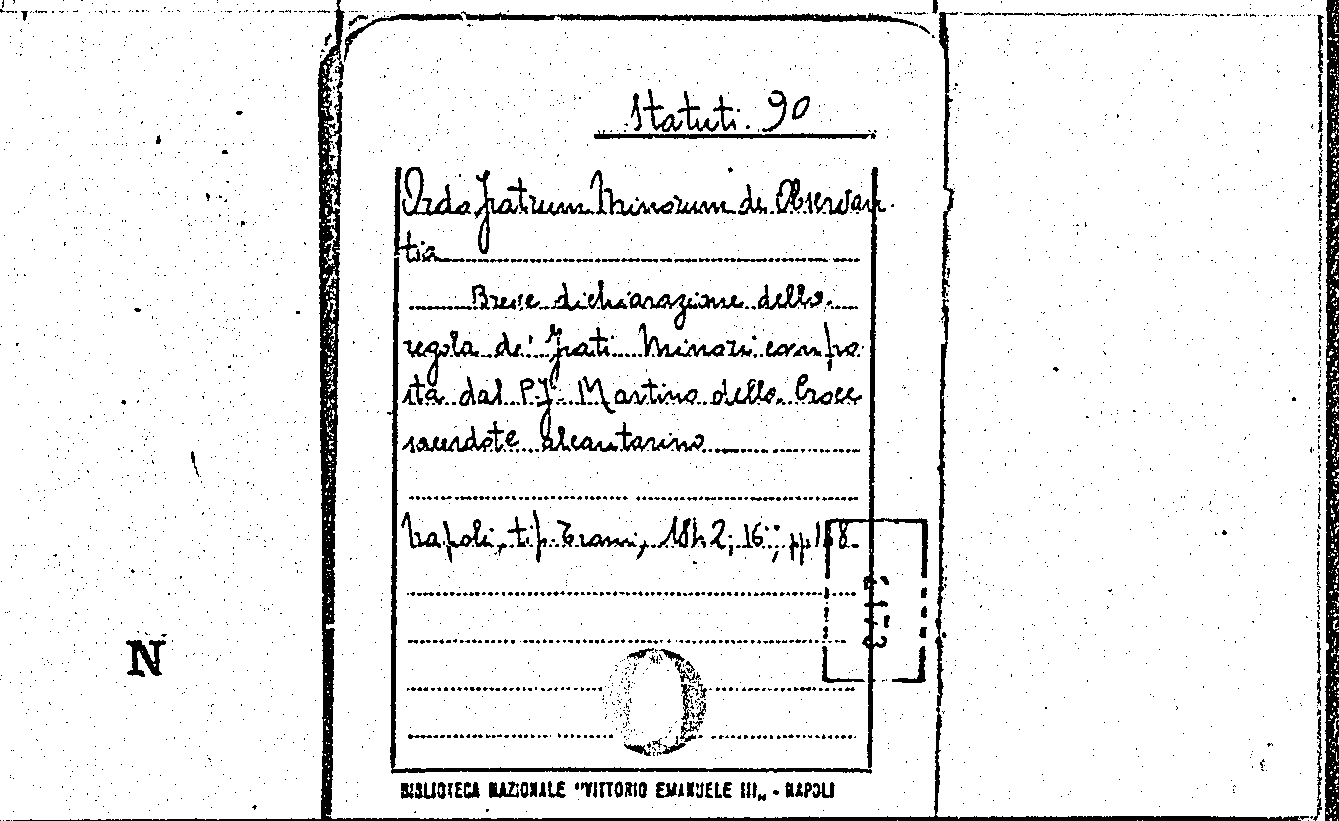 Statuti. 90
Ordo Fratrum Minorum de Observan-
tia
Breve dichiarazione della
regola de' Frati Minori compo-
sta dal P.F. Martino della Croce
sacerdote alcantarino
Napoli, tip. Trani, 1842; 16°; pp
N
BIBLIOTECA NAZIONALE "VITTORIO EMANUELE III„ - NAPOLI